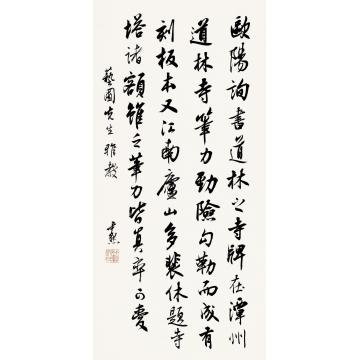 歐陽詢書道林之寺牌在潭州
道林寺筆力勁險勾勒而成有
刻板本又江南廬山多裴休題寺
塔諸額雖乏筆力皆真率可愛
藝圃先生雅教
尹默